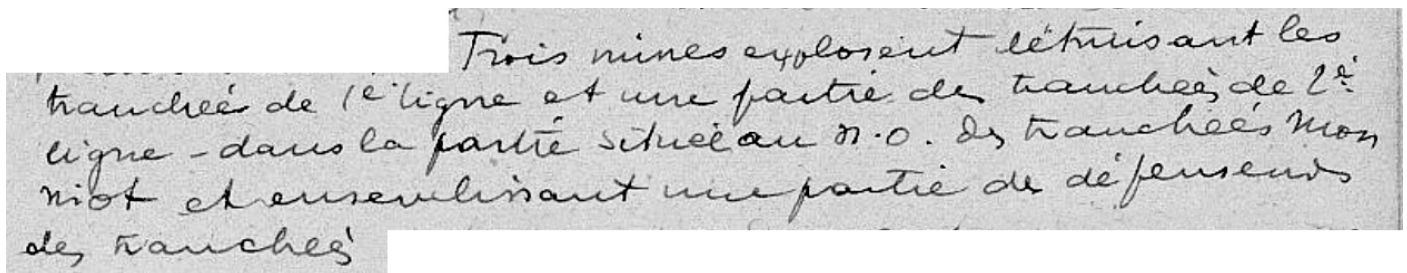 Trois mines explosent détruisant les
tranchées de 1e ligne et une partie des tranchées de 2e
ligne - dans la partie située au N.O. des tranchées Mon
niot et ensevelissant une partie des défenseurs
des tranchées